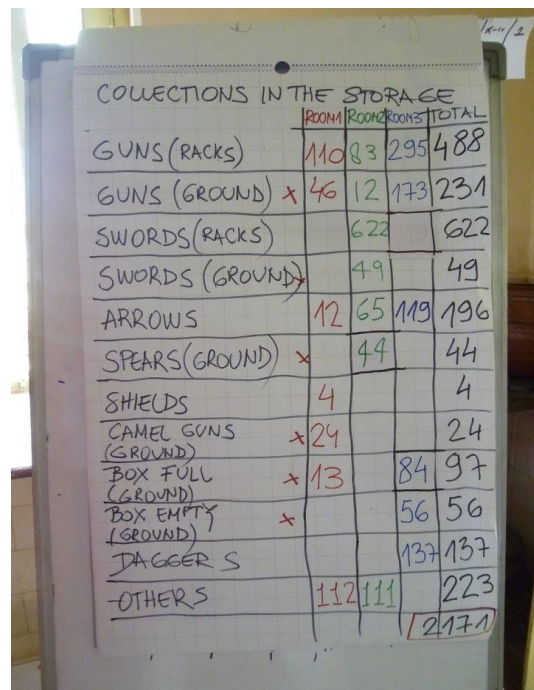 COLLECTIONS IN THE STORAGE
ROOM1 ROOM2 ROOM3 TOTAL
GUNS (RACKS) 110 83 295 488
GUNS (GROUND) x 46 12 173 231
SWORDS (RACKS) 622 622
SWORDS (GROUND) x 49 49
ARROWS 12 65 119 196
SPEARS (GROUND) x 44 44
SHIELDS 4 4
CAMEL GUNS
(GROUND) x 24 24
BOX FULL
(GROUND) x 13 84 97
BOX EMPTY
(GROUND) x 56 56
DAGGERS 137 137
OTHERS 112 111 223
2171